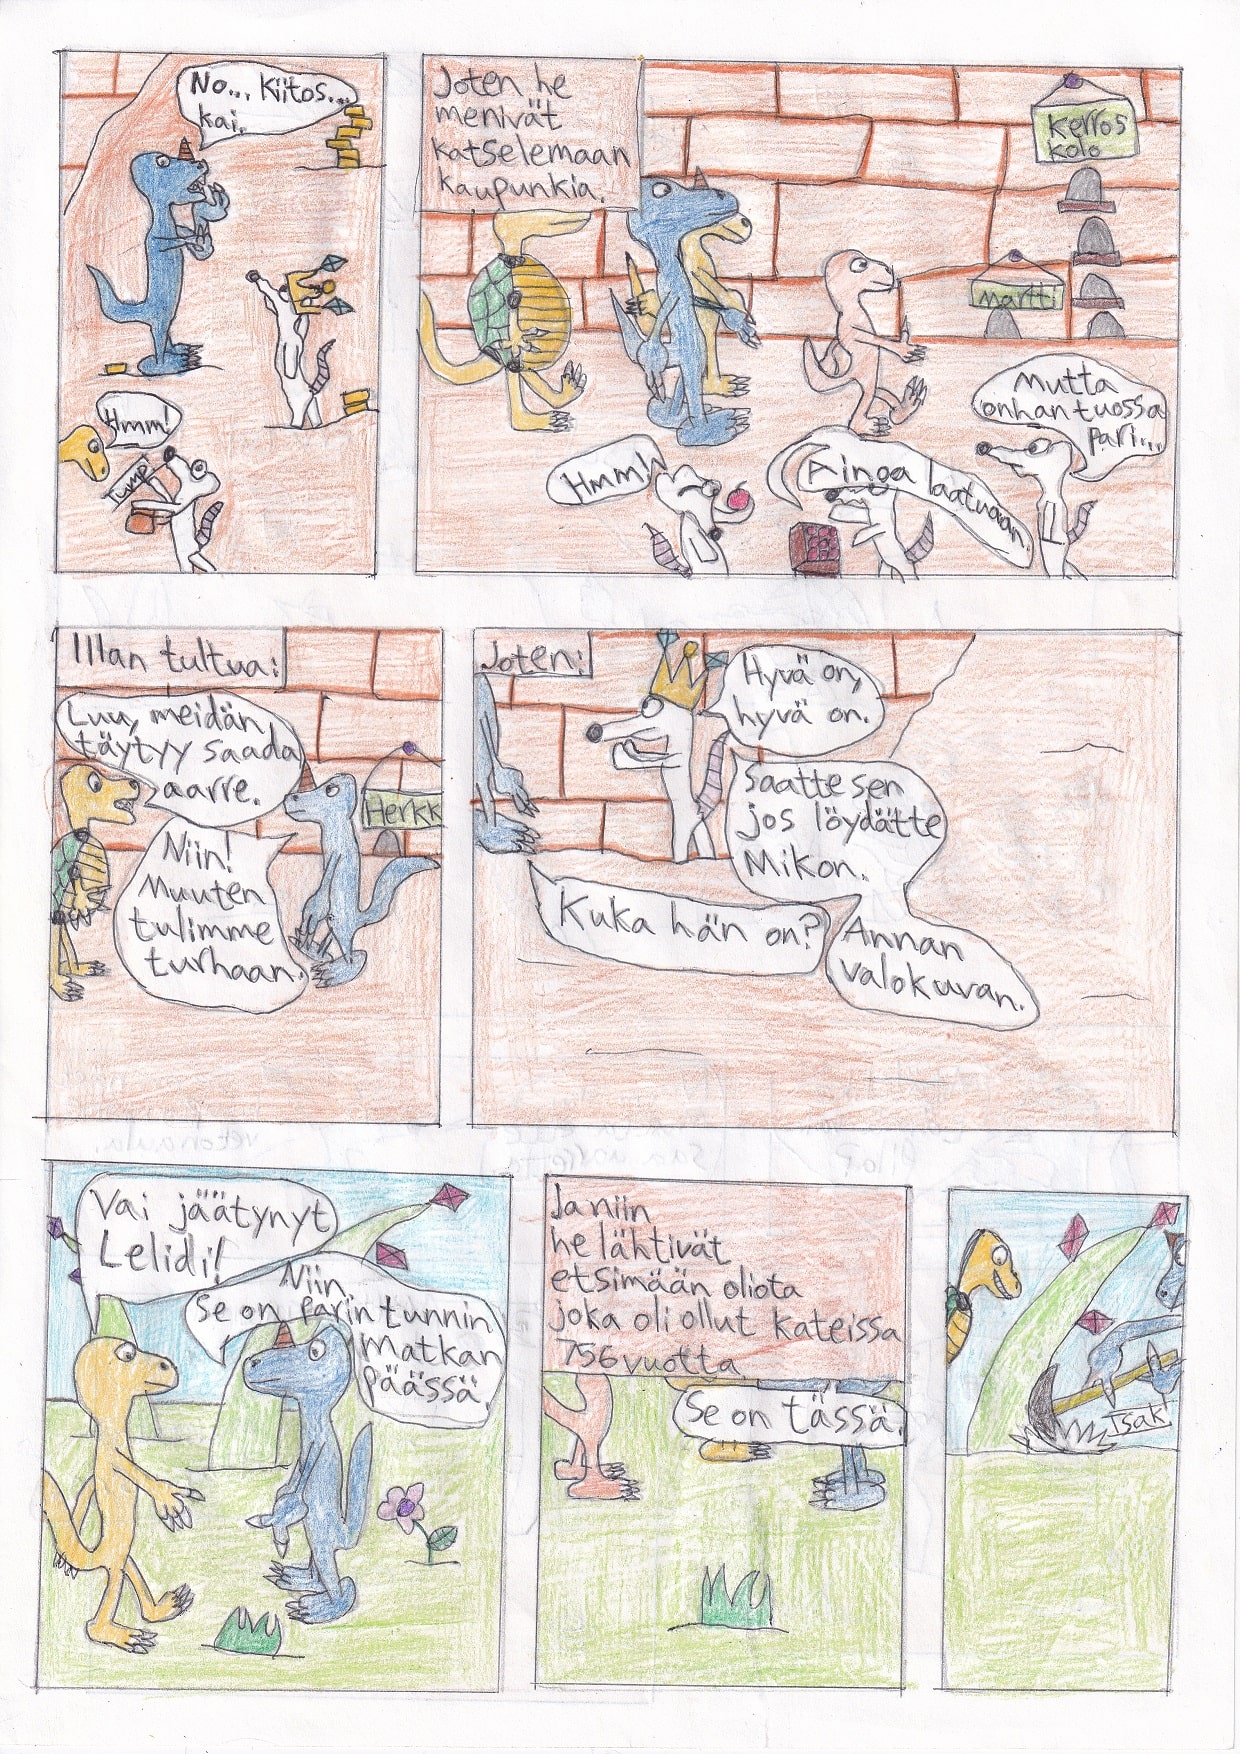 No... Kiitos...
kai.
Hmm!
Tump
Joten he
menivät
katselemaan
kaupunkia.
Kerros
kolo
martti
Mutta
onhan tuossa
pari...
Hmm!
Ainoa laatuaan.
Illan tultua:
Luu, meidän
täytyy saada
aarre.
Herkk
Niin!
Muuten
tulimme
turhaan.
Joten:
Hyvä on,
hyvä on.
Saatte sen
jos löydätte
Mikon.
Kuka hän on?
Annan
valokuvan.
Vai jäätynyt
Lelidi!
Niin,
Se on parin tunnin
matkan
päässä.
Ja niin
he lähtivät
etsimään oliota
joka oli ollut kateissa
756 vuotta
Se on tässä.
Tsak!